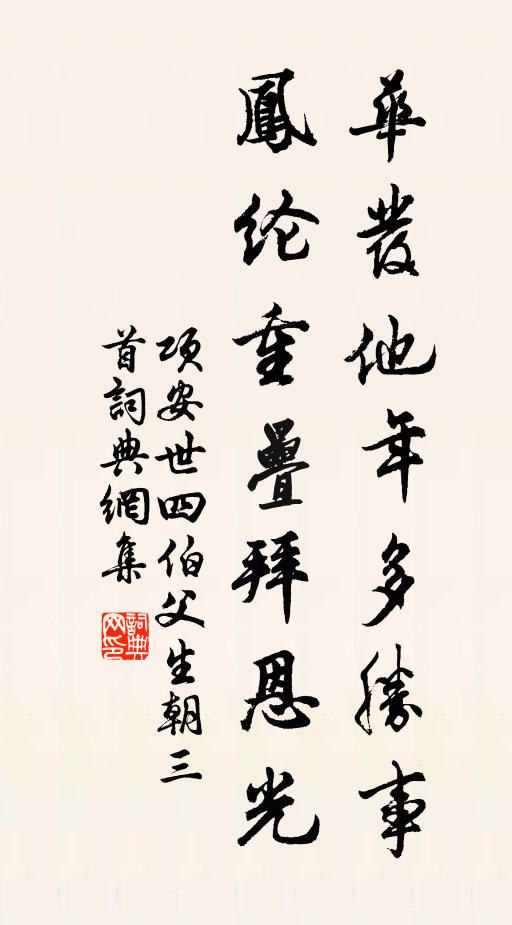 華發他年多勝事
鳳纶重疊拜恩光
項安世四伯父生朝三
首詞典網集
詞典网印